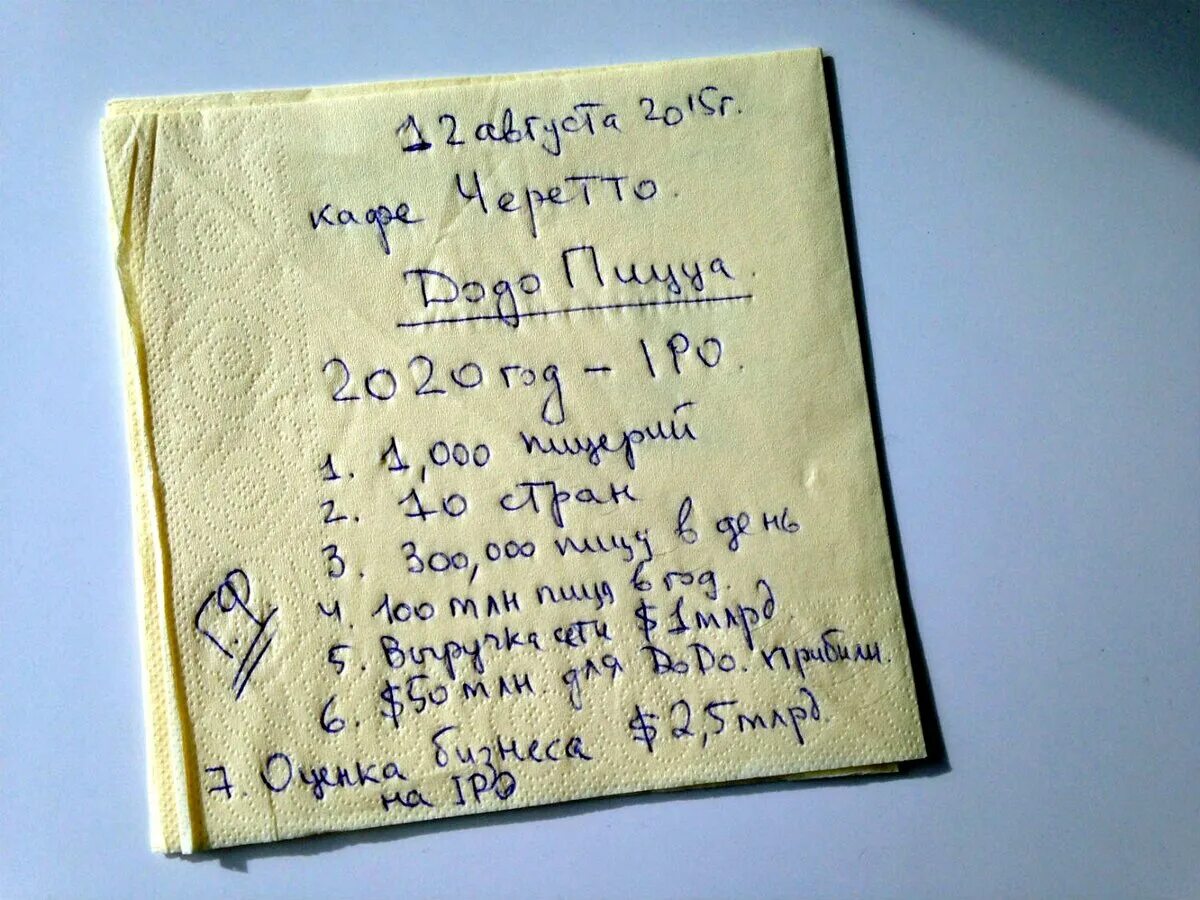 12 августа 2015г.
кафе Черетто.
Додо Пицца.
2020 год – IPO.
1. 1,000 пицерий
2. 10 стран
3. 300,000 пицц в день
4. 100 млн пицц в год.
5. Выручка сети $1 млрд
6. $50 млн. для DoDo. прибыли.
7. Оценка бизнеса $2,5 млрд.
на IPO